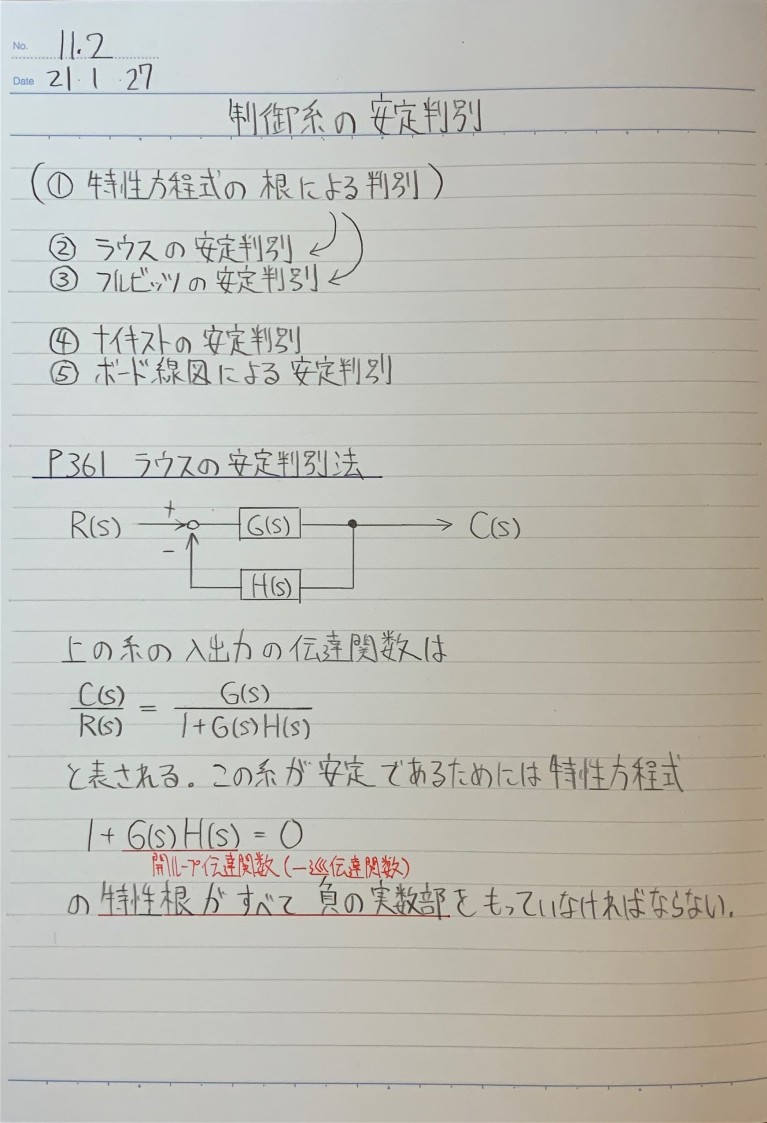 No. 11.2
Date 21・1・27
制御系の安定判別
(① 特性方程式の根による判別)
② ラウスの安定判別
③ フルビッツの安定判別
④ ナイキストの安定判別
⑤ ボード線図による安定判別
P361 ラウスの安定判別法
R(s) + − G(s) C(s)
H(s)
上の系の入出力の伝達関数は
C(s)/R(s) = G(s)/(1+G(s)H(s))
と表される。この系が安定であるためには特性方程式
1+G(s)H(s)=0
開ループ伝達関数(一巡伝達関数)
の特性根がすべて負の実数部をもっていなければならない.